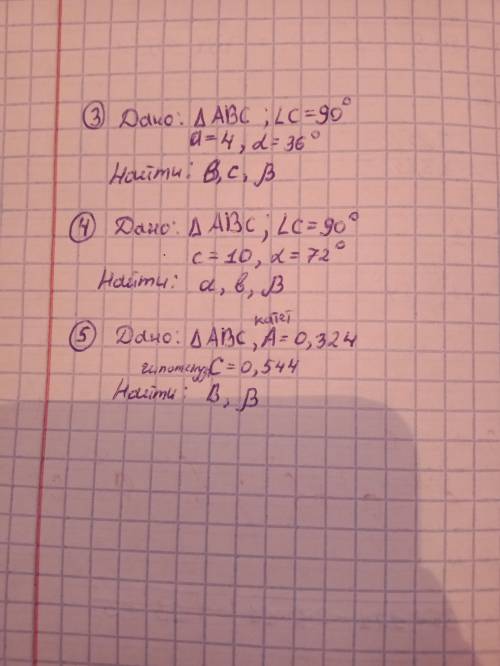 ③ Дано: ΔABC; ∠C=90°
a=4, α=36°
Найти: в, с, β
④ Дано: ΔABC; ∠C=90°
c=10, α=72°
Найти: a, в, β
⑤ Дано: ΔABC, катет A=0,324
гипотенуза C=0,544
Найти: B, β